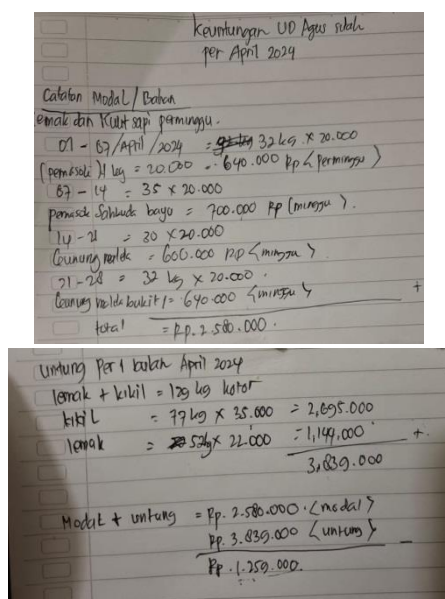 Keuntungan UD Agus sulah
per April 2024
Catatan Modal / Bahan
lemak dan Kulit sapi perminggu.
01 - 07 / April / 2024 = 32 kg x 20.000
(pemasok) 1 kg = 20.000 = 640.000 Rp <perminggu>
07 - 14 = 35 x 20.000
pemasok bayu = 700.000 Rp (minggu).
14 - 21 = 30 x 20.000
Gunung = 600.000 RP <minggu>
21 - 28 = 32 kg x 20.000.
Gunung bukit = 640.000 <minggu> +
total = Rp. 2.580.000.
untung Per 1 bulan April 2024
lemak + kikil = 129 kg kotor
kikil = 77 kg x 35.000 = 2,695.000
lemak = 52 kg x 22.000 = 1,144.000 +
3,839.000
Modal + untung = Rp. 2.580.000. <modal>
Rp. 3.839.000 <untung> -
Rp. 1.259.000.